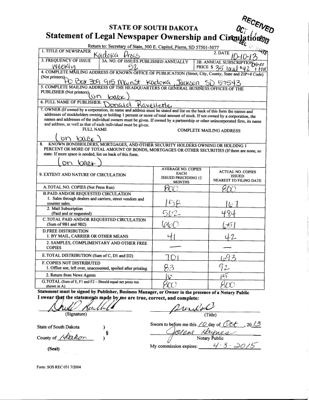 RECEIVED
STATE OF SOUTH DAKOTA
Statement of Legal Newspaper Ownership and Circulation
Return to: Secretary of State, 500 E. Capitol, Pierre, SD 57501-5077
1. TITLE OF NEWSPAPER Kadoka Press
2. DATE 10-10-13
3. FREQUENCY OF ISSUE Weekly
3A. NO. OF ISSUES PUBLISHED ANNUALLY 52
3B. ANNUAL SUBSCRIPTION
PRICE $
4. COMPLETE MAILING ADDRESS OF KNOWN OFFICE OF PUBLICATION (Street, City, County, State and ZIP+4 Code)
(Not printers)
PO Box 309 915 Main St Kadoka Jackson SD 57543
5. COMPLETE MAILING ADDRESS OF THE HEADQUARTERS OR GENERAL BUSINESS OFFICES OF THE
PUBLISHER (Not printers)
(on back)
6. FULL NAME OF PUBLISHER: Donald Ravellette
7. OWNER (If owned by a corporation, its name and address must be stated and list on the back of this form the names and
addresses of stockholders owning or holding 1 percent or more of total amount of stock. If not owned by a corporation, the
names and addresses of the individual owners must be given. If owned by a partnership or other unincorporated firm, its name
and address, as well as that of each individual must be given.
FULL NAME
COMPLETE MAILING ADDRESS
(on back)
8. KNOWN BONDHOLDERS, MORTGAGES, AND OTHER SECURITY HOLDERS OWNING OR HOLDING 1
PERCENT OR MORE OF TOTAL AMOUNT OF BONDS, MORTGAGES OR OTHER SECURITIES (If there are none, so
state. If more space is needed, list on back of this form.
(on back)
9. EXTENT AND NATURE OF CIRCULATION
AVERAGE NO. COPIES
EACH
ISSUED PRECEDING 12
MONTHS
ACTUAL NO. COPIES
ISSUED
NEAREST TO FILING DATE
A. TOTAL NO. COPIES (Net Press Run) 800 800
B. PAID AND/OR REQUESTED CIRCULATION
1. Sales through dealers and carriers, street vendors and
counter sales. 158 167
2. Mail Subscription
(Paid and or requested) 502 484
C. TOTAL PAID AND/OR REQUESTED CIRCULATION
(Sum of 9B1 and 9B2) 660 651
D. FREE DISTRIBUTION
1. BY MAIL, CARRIER OR OTHER MEANS 41 42
2. SAMPLES, COMPLIMENTARY AND OTHER FREE
COPIES
E. TOTAL DISTRIBUTION (Sum of C, D1 and D2) 701 693
F. COPIES NOT DISTRIBUTED
1. Office use, left over, unaccounted, spoiled after printing 83 92
2. Return from News Agents 16 15
G. TOTAL (Sum of E, F1 and F2 – Should equal net press run
shown in A) 800 800
Statement must be signed by Publisher, Business Manager, or Owner in the presence of a Notary Public
I swear that the statements made by me are true, correct, and complete:
(Signature)
(Title)
State of South Dakota )
§
County of )
(Seal)
Sworn to before me this 10 day of Oct, 2013
Notary Public
My commission expires: 4-3-2015
Form: SOS REC 051 7/2004